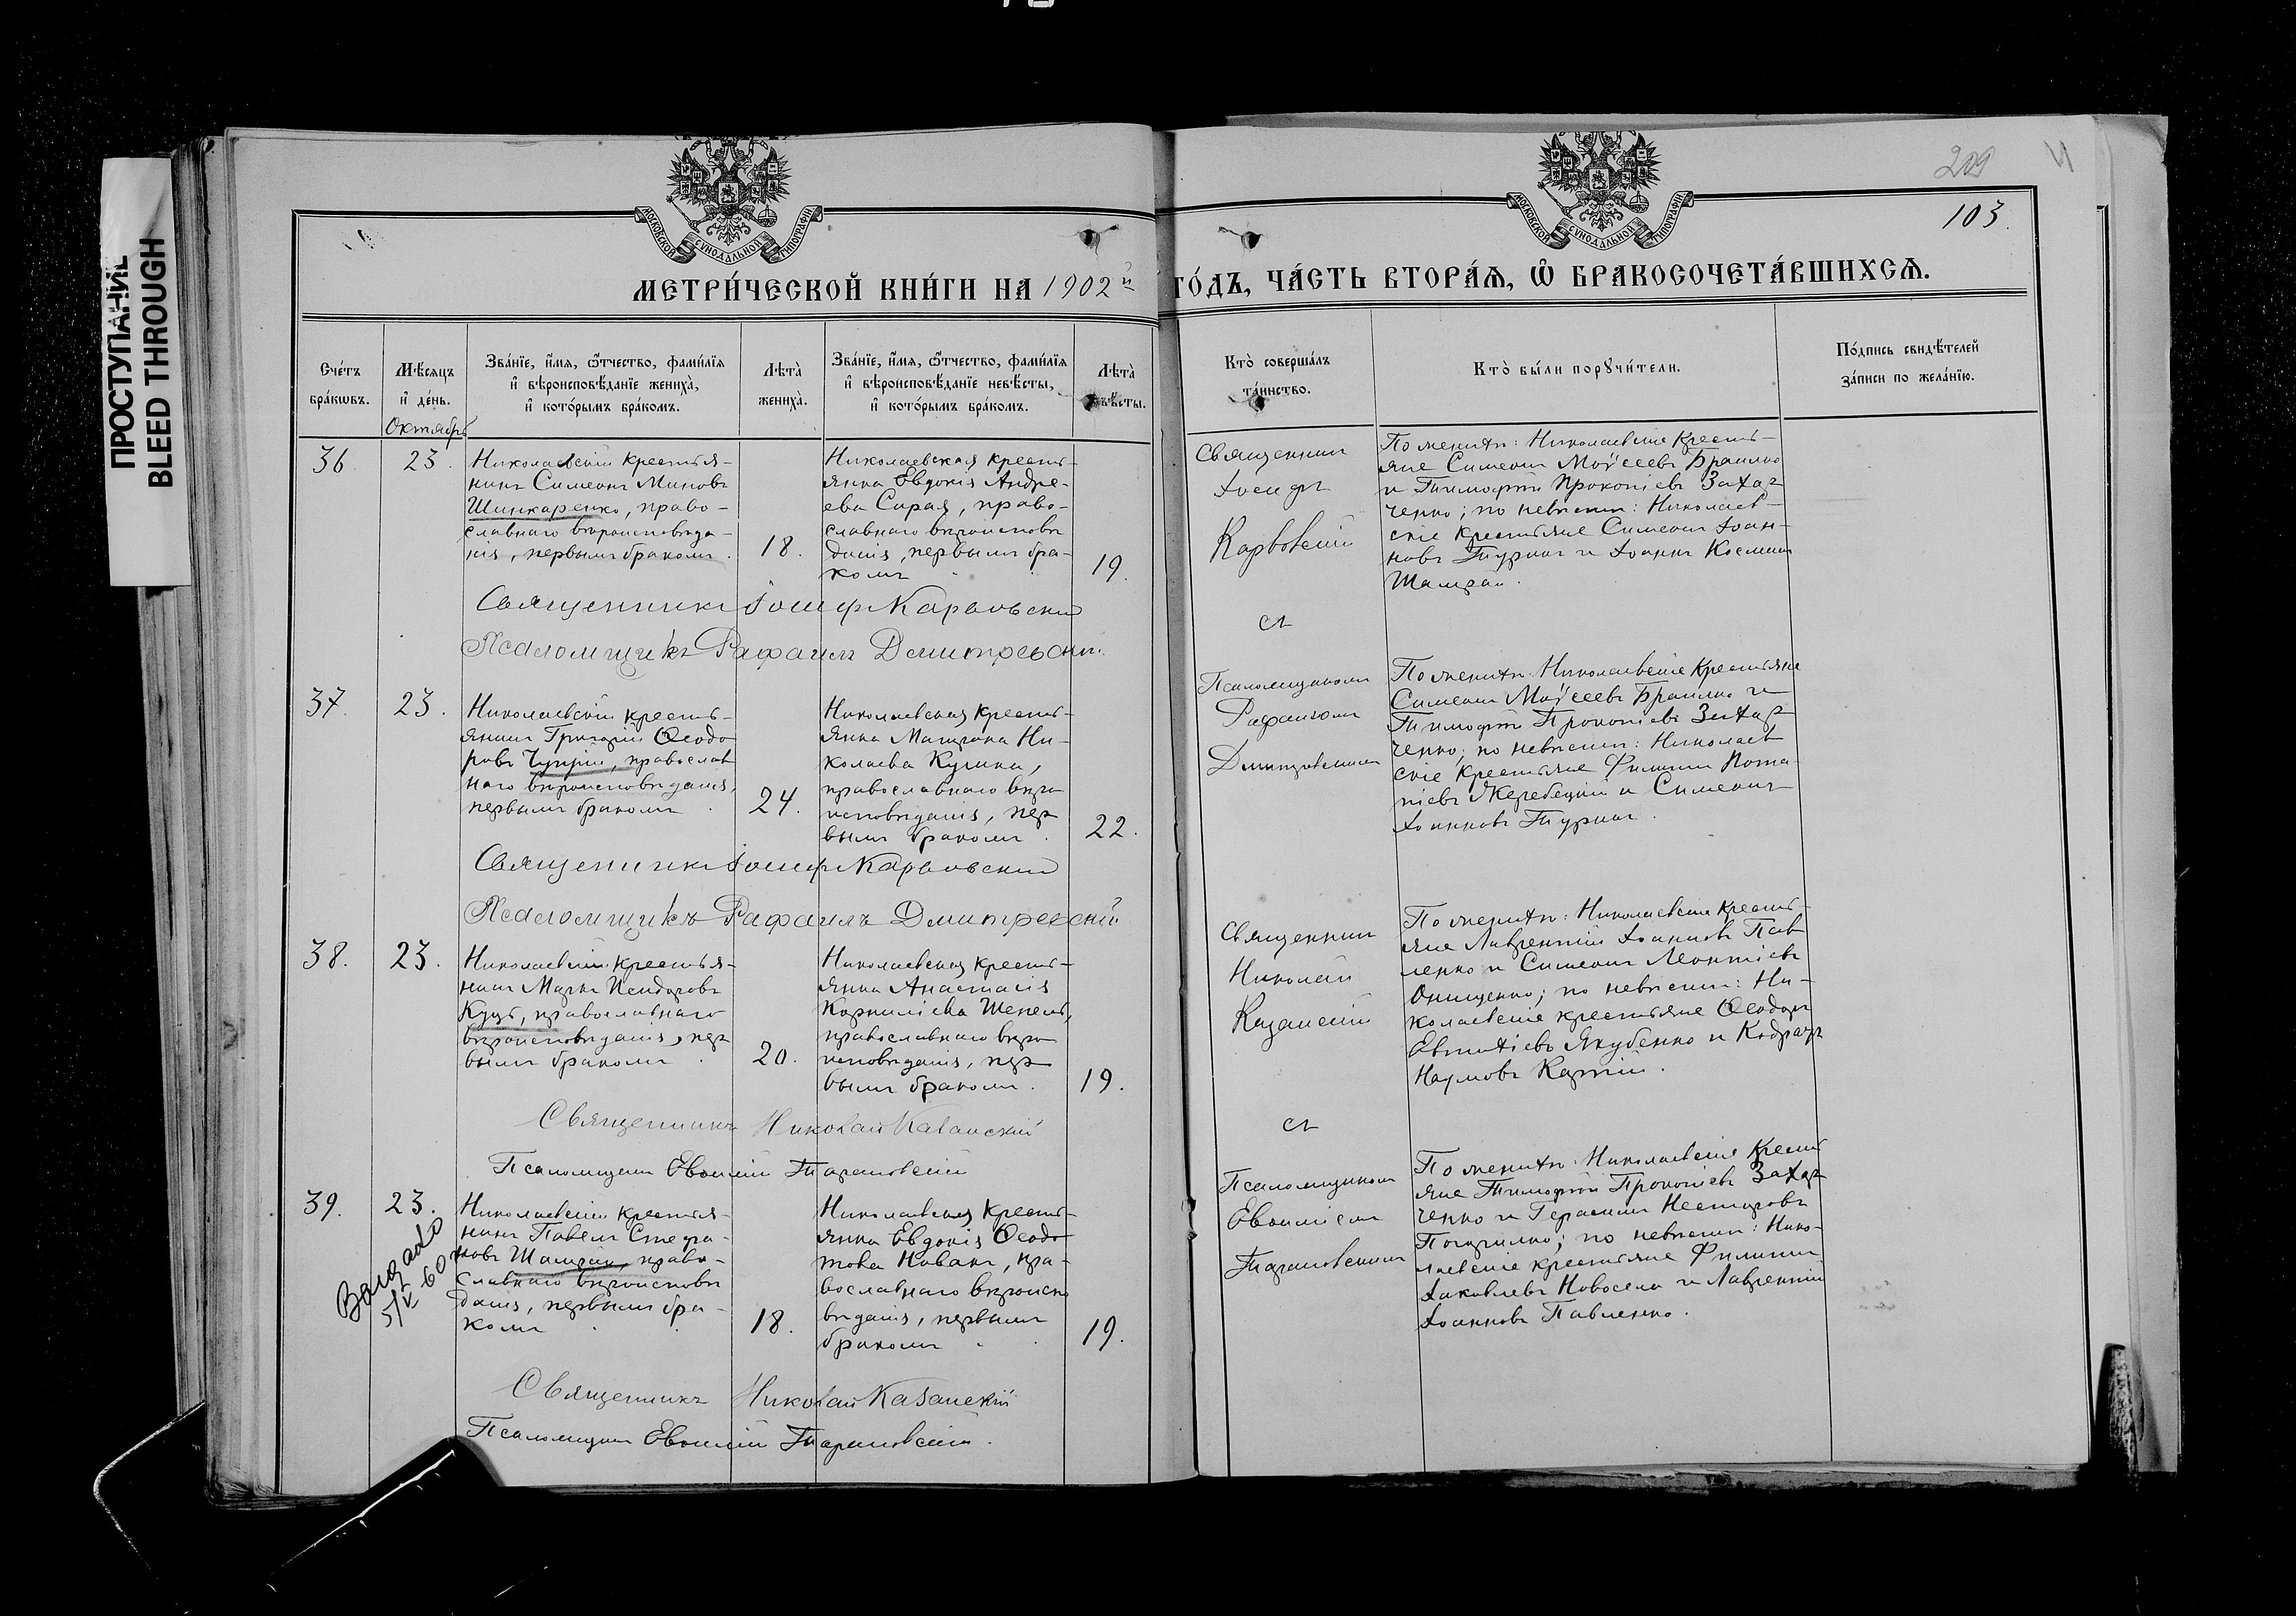 ПРОСТУПАНИЕ
BLEED THROUGH
209
103.
МОСКОВСКОЙ СѴНОДАЛЬНОЙ ТИПОГРАФІИ
МОСКОВСКОЙ СѴНОДАЛЬНОЙ ТИПОГРАФІИ
МЕТРИ́ЧЕСКОЙ КНИ́ГИ НА 1902й
ГО́ДЪ, ЧА́СТЬ ВТОРА́Я, Ѿ БРАКОСОЧЕТА́ВШИХСЯ.
Сче́тъ
бра́кѡвъ.
Мѣ́сяцъ
и҆ де́нь.
Зва́нїе, и҆́мѧ, ѻ҆́тчество, фамилїѧ
и҆ вѣроисповѣ́данїе жениха̀,
и҆ кото́рымъ бра́комъ.
Лѣ́та̀
жениха̀.
Зва́нїе, и҆́мѧ, ѻ҆́тчество, фамилїѧ
и҆ вѣроисповѣ́данїе невѣ́сты,
и҆ кото́рымъ бра́комъ.
Лѣ́та̀
невѣ́сты.
Кто̀ соверша́лъ
та́инство.
Кто̀ бы́ли порꙋчи́тели.
По́дпись свидѣ́телей
за́писи по жела́нїю.
Октябрь
36.
23.
Николаевскій крестья-
нинъ Симеонъ Миновъ
Шинкаренко, право-
славнаго вѣроисповѣда-
нія, первымъ бракомъ.
18.
Николаевская кресть-
янка Евдокія Андре-
ева Сирая, право-
славнаго вѣроисповѣ
данія, первымъ бра-
комъ
19.
Священникъ
Іосифъ
Карвовскій
съ
Псаломщикомъ
Рафаиломъ
Дмитревскимъ
По женихѣ: Николаевскіе кресть-
яне Симеонъ Моѵсеевъ Браилко
и Тимофей Прокопіевъ Захар
ченко; по невѣстѣ: Николаев-
скіе крестьяне Симеонъ Іоан-
новъ Туркъ и Іоаннъ Косминъ
Шамрай.
Священникъ Іосифъ Карвовскій
Псаломщикъ Рафаилъ Дмитревскій.
37.
23.
Николаевскій кресть-
янинъ Григорій Ѳеодо
ровъ Чуприй, православ
наго вѣроисповѣданія,
первымъ бракомъ.
24.
Николаевская кресть-
янка Матрона Ни-
колаева
православнаго вѣро
исповѣданія, пер
вымъ бракомъ.
22.
По женихѣ: Николаевскіе крестьяне
Симеонъ Моѵсеевъ Браилко и
Тимофей Прокопіевъ Захар
ченко; по невѣстѣ: Николаев
скіе крестьяне Филиппъ Пота-
піевъ Жеребецкій и Симеонъ
Іоанновъ Туркъ.
Священникъ Іосифъ Карвовскій
Псаломщикъ Рафаилъ Дмитревскій
38.
23.
Николаевскій крестья-
нинъ Маркъ Исидоровъ
Куцъ, православнаго
вѣроисповѣданія, пер
вымъ бракомъ.
20.
Николаевская кресть-
янка Анастасія
Корниліева Шепель,
православнаго вѣро
исповѣданія, пер
вымъ бракомъ.
19.
Священникъ
Николай
Казанскій
съ
Псаломщикомъ
Евѳиміемъ
Тарановскимъ
По женихѣ: Николаевскіе кресть-
яне Лаврентій Іоанновъ Пав
ленко и Симеонъ Леонтіевъ
Онищенко; по невѣстѣ: Ни-
колаевскіе крестьяне Ѳеодоръ
Евтихіевъ Якубенко и Кодратъ
Наумовъ
Священникъ Николай Казанскій
Псаломщикъ Евѳимій Тарановскій
39.
23.
Николаевскій крестья-
нинъ Павелъ Стефа-
новъ Шамрай, право-
славнаго вѣроисповѣ
данія, первымъ бра-
комъ.
18.
Николаевская кресть-
янка Евдокія Ѳеодо
това Коваль, пра-
вославнаго вѣроиспо
вѣданія, первымъ
бракомъ.
19.
5/V 60
По женихѣ: Николаевскіе кресть
яне Тимофей Прокопіевъ Захар
ченко и Герасимъ Несторовъ
по невѣстѣ: Нико-
лаевскіе крестьяне Филиппъ
Іаковлевъ Новосела и Лаврентій
Іоанновъ Павленко.
Священникъ Николай Казанскій
Псаломщикъ Евѳимій Тарановскій.